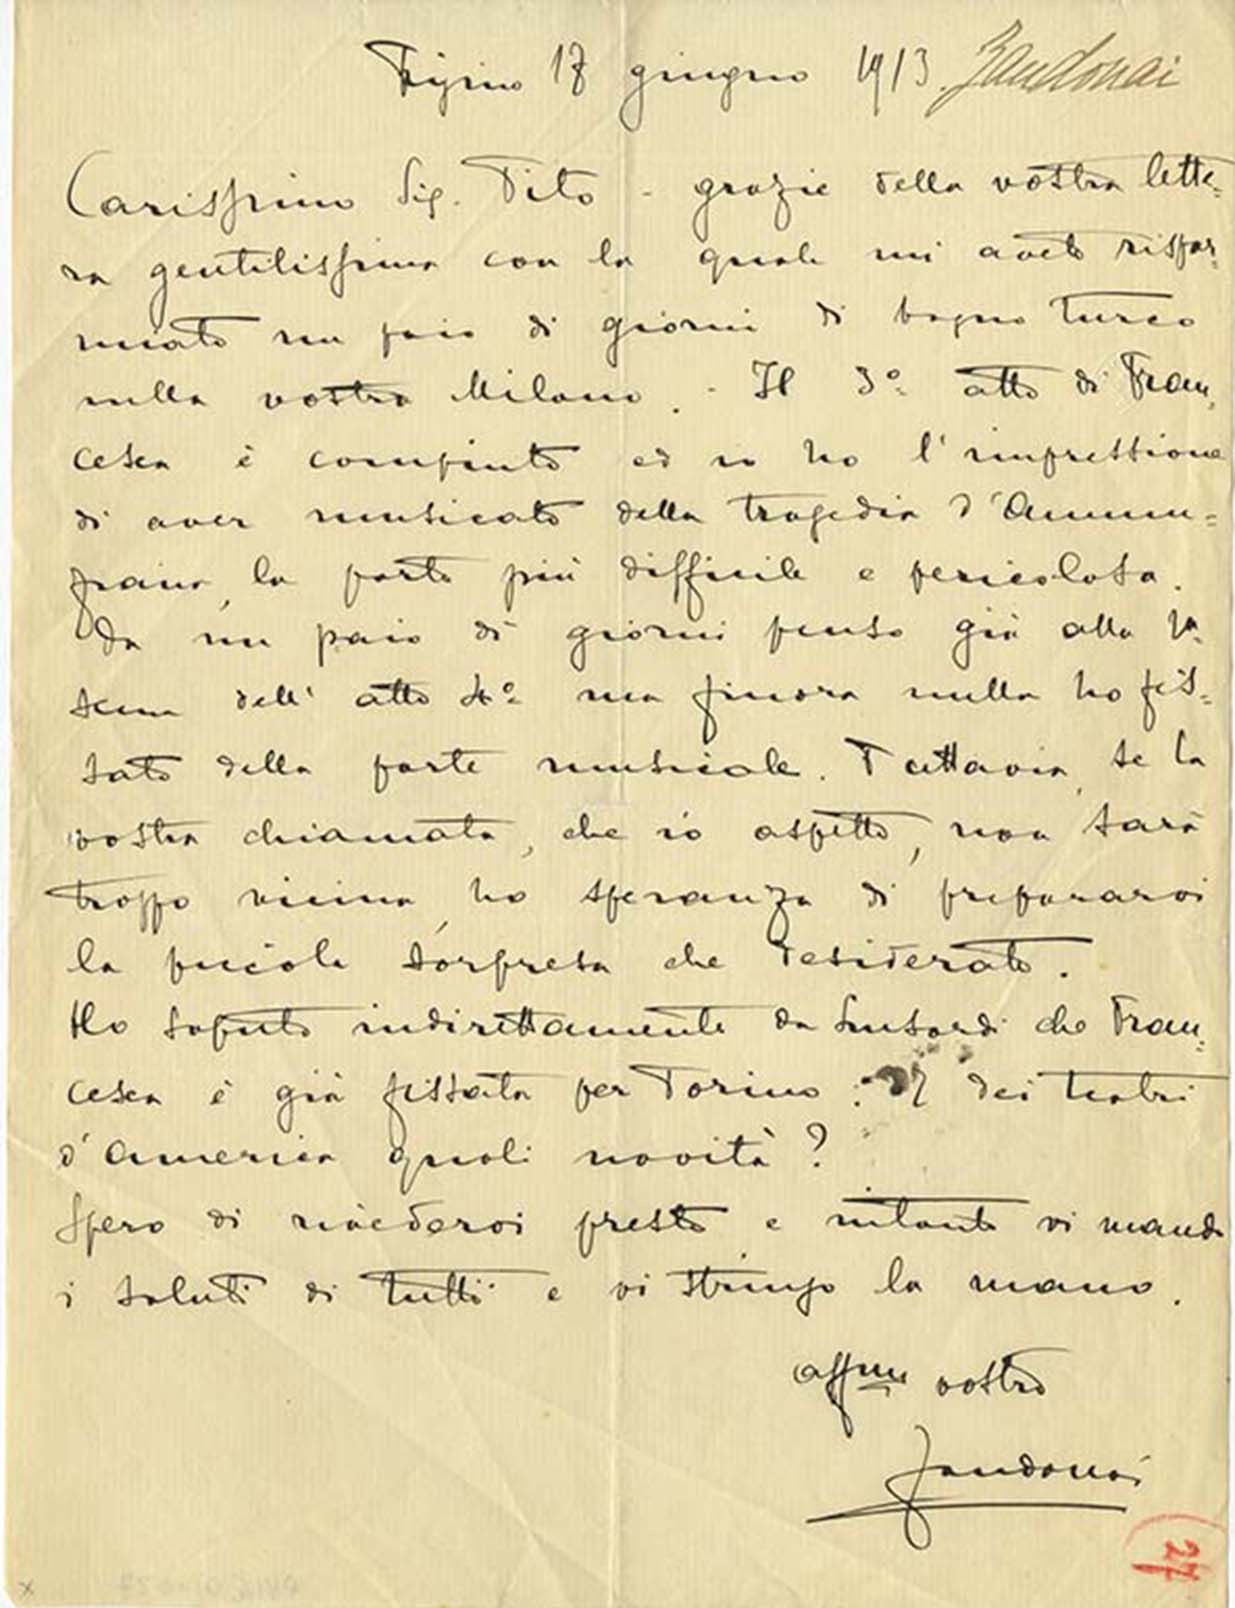 Figino 17 giugno 1913. Zandonai
Carissimo Sig. Tito - grazie della vostra lette=
ra gentilissima con la quale mi avete rispar=
miato un paio di giorni di bagno turco
nella vostra Milano. - Il 3º atto di Fran=
cesca è compiuto ed io ho l'impressione
di aver musicato della tragedia d'Annun=
ziana, la parte più difficile e pericolosa.
Da un paio di giorni penso già alla 1a
scena dell'atto 4º ma finora nulla ho fis=
sato della parte musicale. Tuttavia, se la
vostra chiamata, che io aspetto, non sarà
troppo vicina, ho speranza di prepararvi
la piccola sorpresa che desiderate.
Ho saputo indirettamente da Lusardi che Fran=
cesca è già fissata per Torino: dei teatri
d'America quali novità?
Spero di rivedervi presto e intanto vi mando
i saluti di tutti e vi stringo la mano.
affmo vostro
Zandonai
27
x